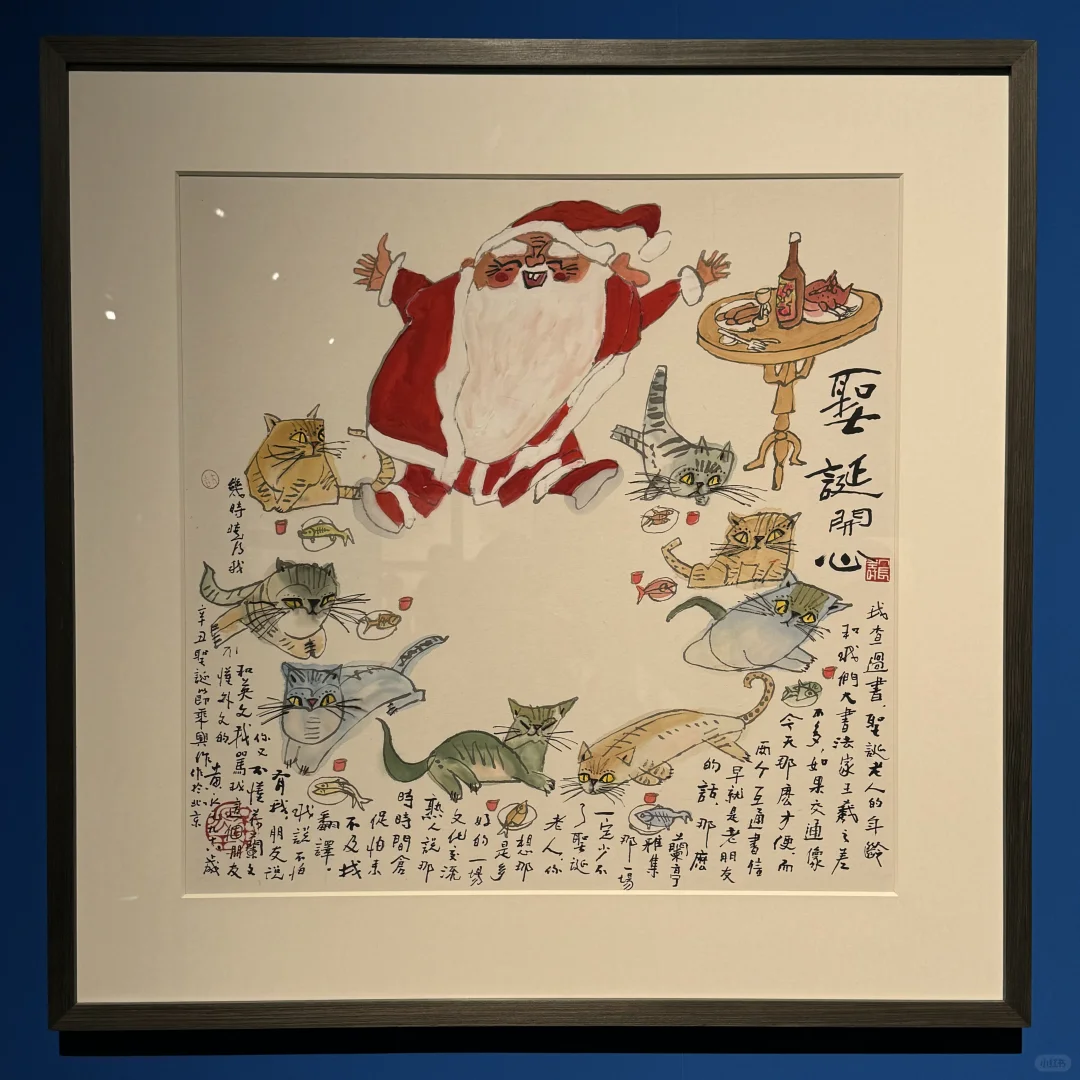 聖誕開心
我查過書，聖誕老人的年齡
和我們大書法家王羲之差
不多，如果交通像
今天那麽方便，而
兩个互通書信
早就是老朋友
的話，那麽
蘭亭
雅集
那一場
一定少不
了聖誕
老人，你
想那
是多
好的一場
文化交流
熟人說那
時時間倉
促怕来
不及找
翻譯。
我說不怕
有我。朋友說
你又不懂希蘭文
和英文我罵我這個朋友
幾時曉得我
不懂外文的
辛丑聖誕節乘興作於北京
黃永玉九十八歲